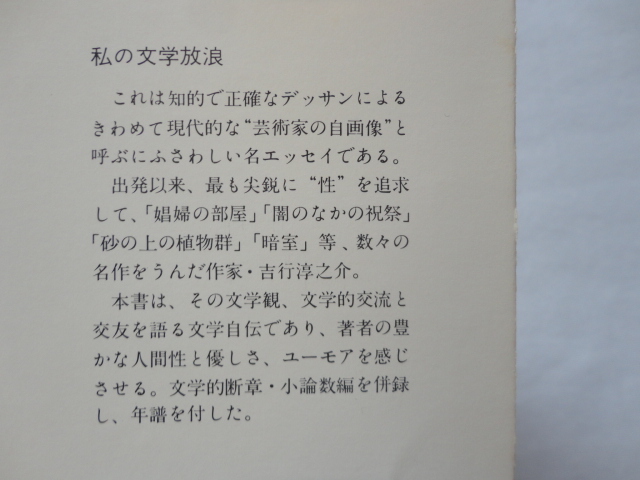 私の文学放浪
これは知的で正確なデッサンによる
きわめて現代的な“芸術家の自画像”と
呼ぶにふさわしい名エッセイである。
出発以来、最も尖鋭に“性”を追求
して、「娼婦の部屋」「闇のなかの祝祭」
「砂の上の植物群」「暗室」等、数々の
名作をうんだ作家・吉行淳之介。
本書は、その文学観、文学的交流と
交友を語る文学自伝であり、著者の豊
かな人間性と優しさ、ユーモアを感じ
させる。文学的断章・小論数編を併録
し、年譜を付した。